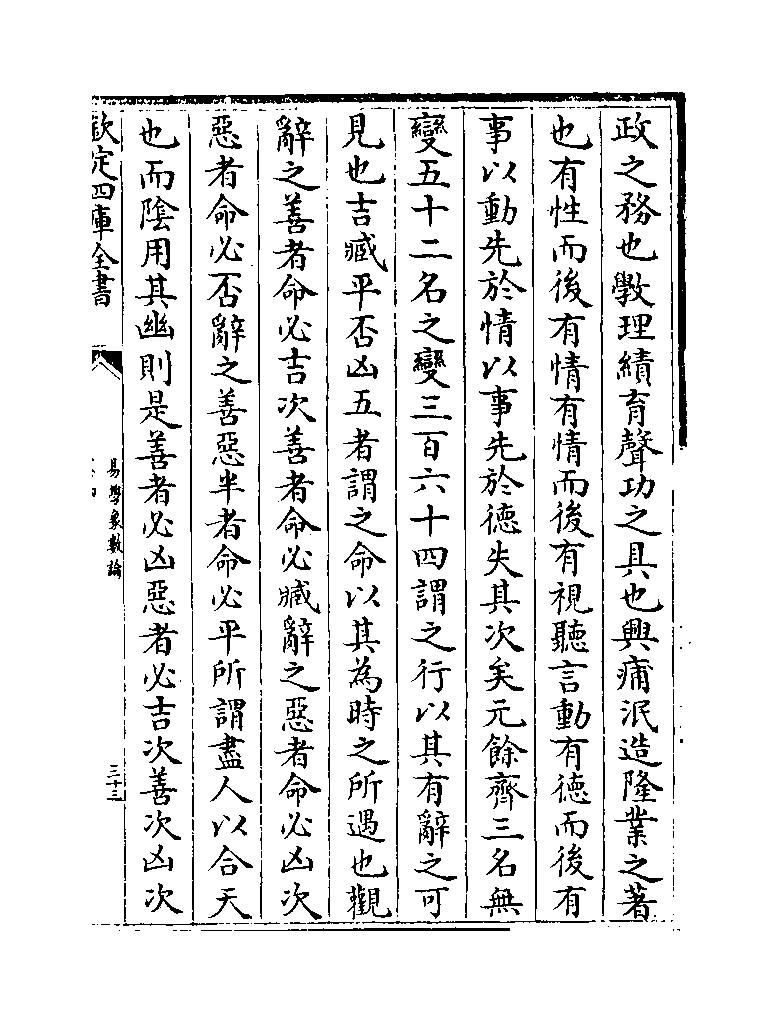 政之務也斆理績育聲功之具也興痡泯造隆業之著
也有性而後有情有情而後有視聽言動有德而後有
事以動先於情以事先於德失其次矣元餘齊三名無
變五十二名之變三百六十四謂之行以其有辭之可
見也吉臧平否凶五者謂之命以其為時之所遇也觀
辭之善者命必吉次善者命必臧辭之惡者命必凶次
惡者命必否辭之善惡半者命必平所謂盡人以合天
也而隂用其幽則是善者必凶惡者必吉次善次凶次
欽定四庫全書
易學象數論
三十三